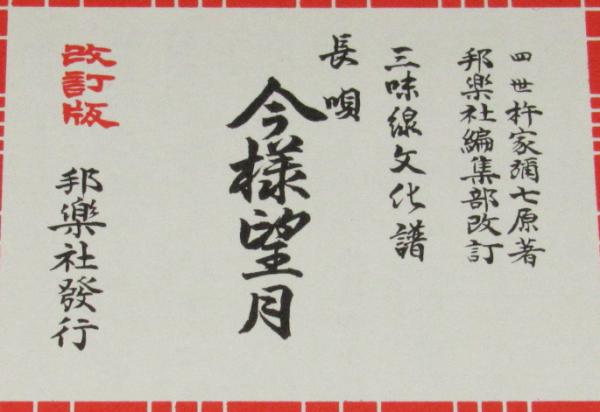 四世杵家彌七原著
邦樂社編集部改訂
三味線文化譜
長唄
今様望月
改訂版
邦樂社發行